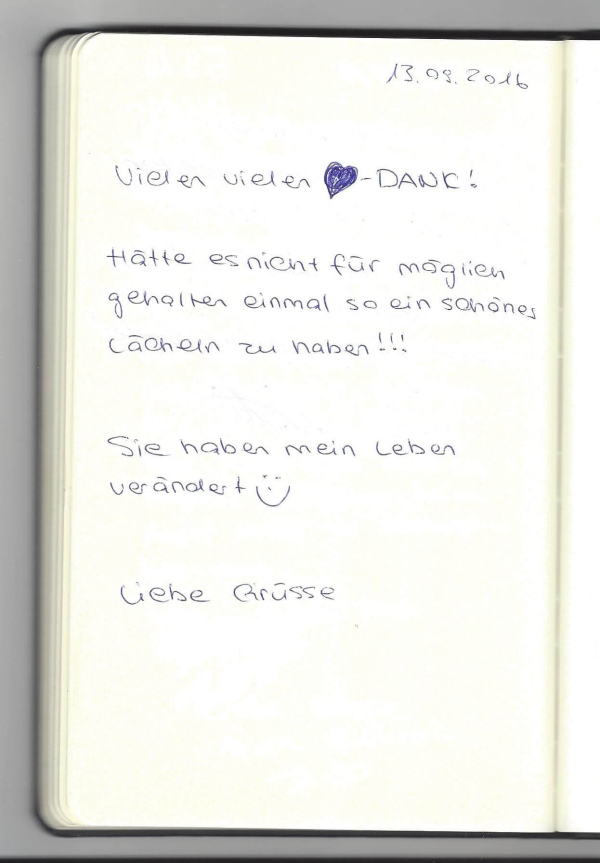 13.09.2016
Vielen vielen ♥-DANK!
Hätte es nicht für möglich
gehalten einmal so ein schönes
Lächeln zu haben!!!
Sie haben mein Leben
verändert ☺
Liebe Grüsse